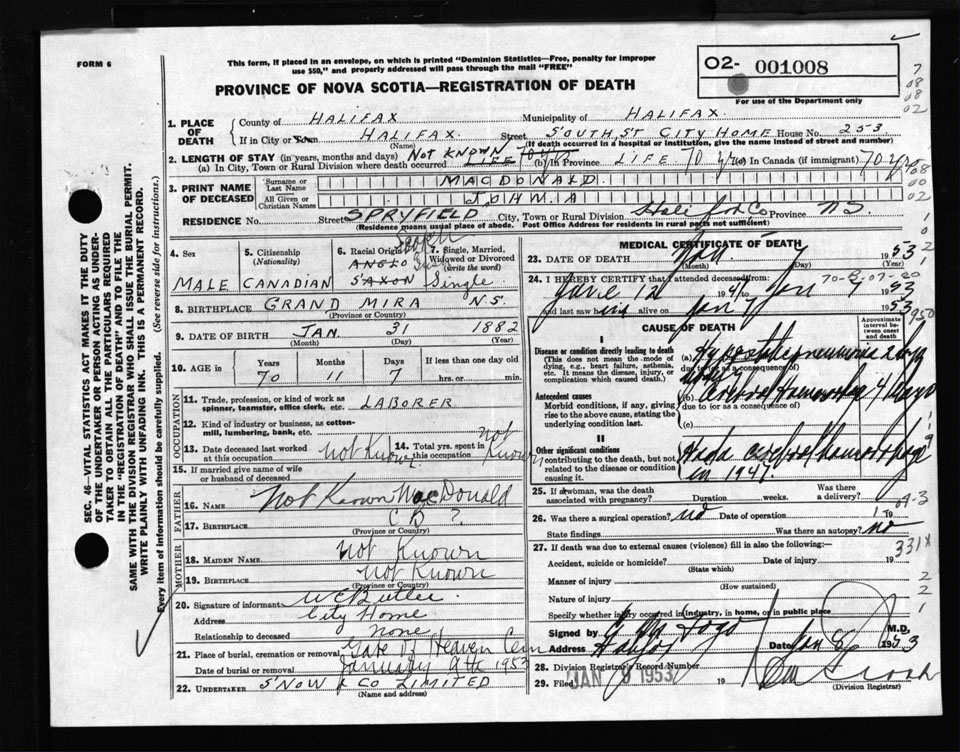 FORM 6
This form, if placed in an envelope, on which is printed "Dominion Statistics—Free, penalty for improper
use $50," and properly addressed will pass through the mail "FREE"
O2- 001008
For use of the Department only
PROVINCE OF NOVA SCOTIA—REGISTRATION OF DEATH
SEC. 46—VITAL STATISTICS ACT MAKES IT THE DUTY
OF THE UNDERTAKER OR PERSON ACTING AS UNDER-
TAKER TO OBTAIN ALL THE PARTICULARS REQUIRED
IN THE "REGISTRATION OF DEATH" AND TO FILE THE
SAME WITH THE DIVISION REGISTRAR WHO SHALL ISSUE THE BURIAL PERMIT.
WRITE PLAINLY WITH UNFADING INK. THIS IS A PERMANENT RECORD.
Every item of information should be carefully supplied. (See reverse side for instructions.)
1. PLACE OF DEATH
County of HALIFAX Municipality of HALIFAX
If in City or Town HALIFAX. Street SOUTH ST CITY HOME House No. 253
(Name) (If death occurred in a hospital or institution, give the name instead of street and number)
2. LENGTH OF STAY (in years, months and days) NOT KNOWN
(a) In City, Town or Rural Division where death occurred LIFE (b) In Province LIFE 70 yrs (c) in Canada (if immigrant) 70 yrs
3. PRINT NAME OF DECEASED
Surname or Last Name MACDONALD.
All Given or Christian Names
RESIDENCE No. Street SPRYFIELD City, Town or Rural Division Halifax Co Province N.S.
(Residence means usual place of abode. Post Office Address for residents in rural parts not sufficient)
4. Sex
MALE
5. Citizenship (Nationality)
CANADIAN
6. Racial Origin
Scotch
ANGLO
SAXON
7. Single, Married, Widowed or Divorced (write the word)
Single
8. BIRTHPLACE GRAND MIRA N.S.
(Province or Country)
9. DATE OF BIRTH JAN. 31 1882
(Month) (Day) (Year)
10. AGE in Years Months Days If less than one day old
70 11 7 hrs. or min.
OCCUPATION
11. Trade, profession, or kind of work as spinner, teamster, office clerk, etc. LABORER
12. Kind of industry or business, as cotton-mill, lumbering, bank, etc.
13. Date deceased last worked at this occupation not Known
14. Total yrs. spent in this occupation not Known
15. If married give name of wife or husband of deceased
FATHER
16. NAME Not Known MacDonald
17. BIRTHPLACE C B ?
(Province or Country)
MOTHER
18. MAIDEN NAME Not Known
19. BIRTHPLACE Not Known
(Province or Country)
20. Signature of informant W C Butler
Address City Home
Relationship to deceased None
21. Place of burial, cremation or removal Gate of Heaven Cem
Date of burial or removal January 9th 1953
22. UNDERTAKER SNOW & CO LIMITED
(Name and address)
MEDICAL CERTIFICATE OF DEATH
23. DATE OF DEATH 7 1953
(Month) (Day) (Year)
24. I HEREBY CERTIFY that I attended deceased from:
June 12 1947 to Jan 7 1953
and last saw him alive on Jan 7 1953
CAUSE OF DEATH
Approximate interval between onset and death
I
Disease or condition directly leading to death
(This does not mean the mode of dying, e.g., heart failure, asthenia, etc. It means the disease, injury, or complication which caused death.)
(a) Hypostatic pneumonia 2 days
due to (or as a consequence of)
Antecedent causes
Morbid conditions, if any, giving rise to the above cause, stating the underlying condition last.
(b) Cerebral Hemorrhage 4 days
due to (or as a consequence of)
(c)
II
Other significant conditions
contributing to the death, but not related to the disease or condition causing it.
Had a cerebral hemorrhage
in 1947.
25. If a woman, was the death associated with pregnancy? Duration weeks. Was there a delivery?
26. Was there a surgical operation? no Date of operation 19
State findings Was there an autopsy? no
27. If death was due to external causes (violence) fill in also the following:—
331X
Accident, suicide or homicide? Date of injury 19
(State which)
Manner of injury
(How sustained)
Nature of injury
Specify whether injury occurred in industry, in home, or in public place
Signed by M.D.
Address Halifax Date Jan 8 1953
28. Division Registrar's Record Number
29. Filed JAN 9 1953 19
(Division Registrar)